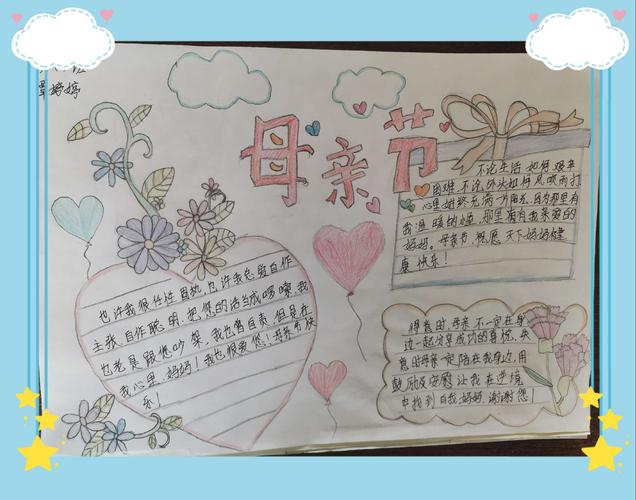 婷婷
母亲节
也许我很任性固执，也许我总爱自作
主张，自作聪明，把您的话当成唠嗦，我
也老是跟您吵架，我也会自责，但是在
我心里妈妈！我也很爱您！母亲节快
乐！
不论生活如何艰辛
困难，不论外头如何风吹雨打
心里始终充满一片阳光，因为那里有
我温暖的
那里有有我亲爱的
妈妈。母亲节，祝愿天下妈妈健
康快乐！
得意时，母亲不一定在身
边一起分享成功的喜悦，失
意时母亲一定陪在我身边，用
鼓励及安慰让我在逆境
中找到自我妈妈，谢谢您！